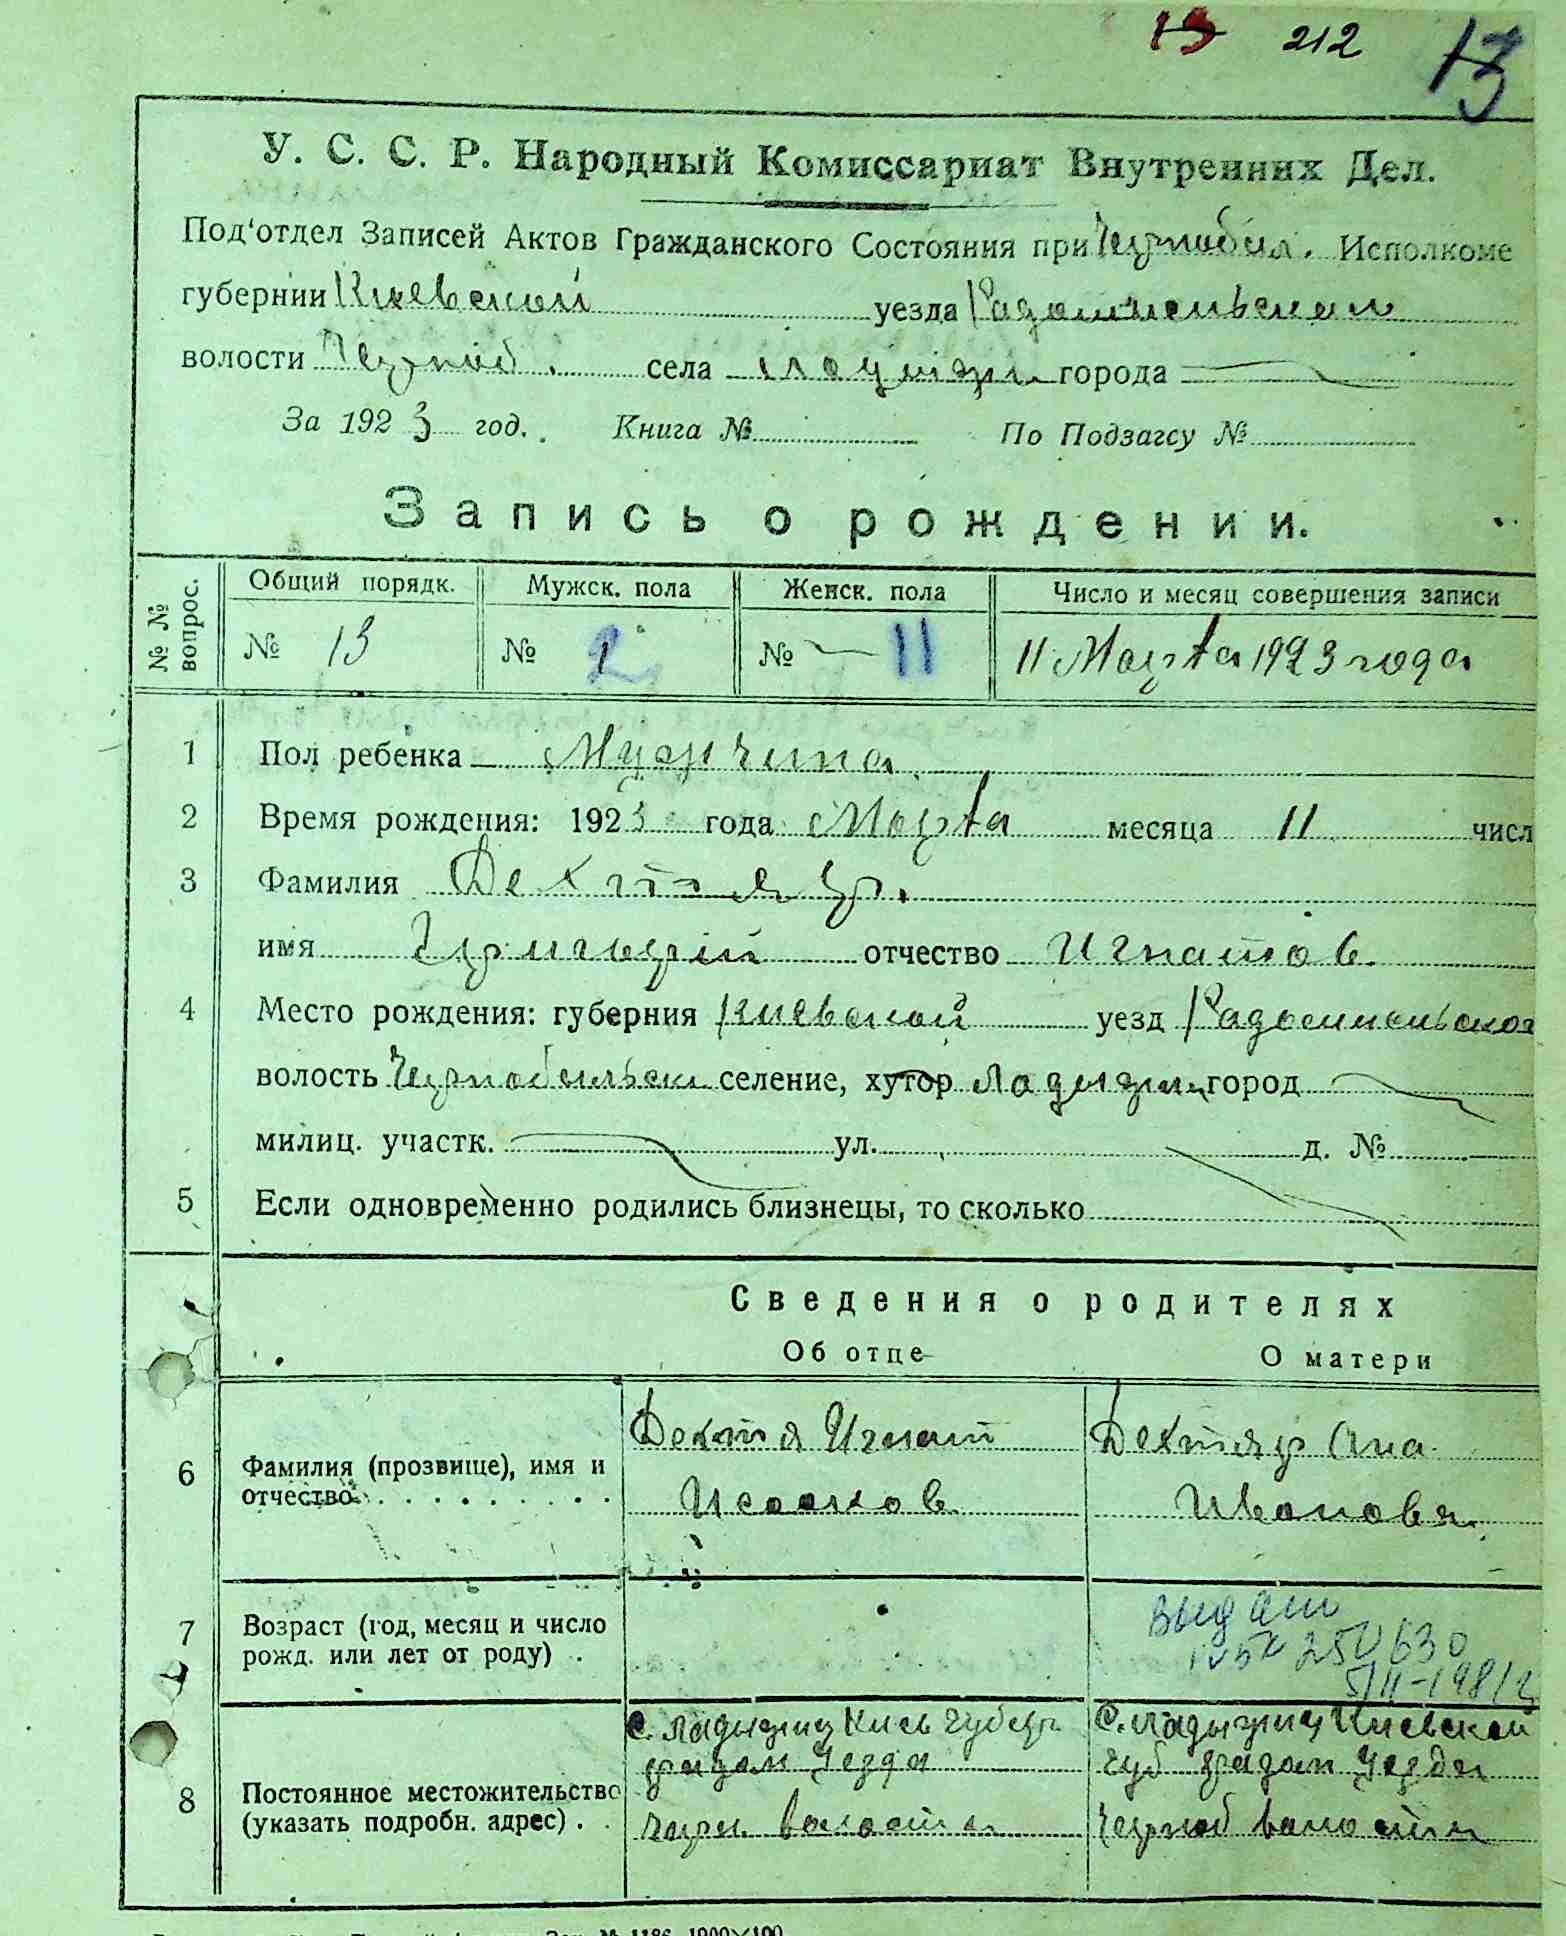 13 212 13
У. С. С. Р. Народный Комиссариат Внутренних Дел.
Под'отдел Записей Актов Гражданского Состояния при Чернобыл. Исполкоме
губернии Киевской уезда Радомысльском
волости Черноб. села города
За 1923 год. Книга № По Подзагсу №
Запись о рождении.
№ № вопрос. Общий порядк. Мужск. пола Женск. пола Число и месяц совершения записи
№ 13 № 2 № 11 11 Марта 1923 года
1 Пол ребенка Мужчина
2 Время рождения: 1923 года Марта месяца 11 числ
3 Фамилия Дехтяр.
имя Григорий отчество Игнатов.
4 Место рождения: губерния Киевской уезд Радомисльской
волость Чернобыльск селение, хутор Ладыжи город
милиц. участк. ул. д. №
5 Если одновременно родились близнецы, то сколько
Сведения о родителях
Об отце О матери
6 Фамилия (прозвище), имя и Дехтя Игнат Дехтяр Ана
отчество Исааков Ивановя
7 Возраст (год, месяц и число Выдан
рожд. или лет от роду) . 250630
С. Ладыжичи Киев Губер С. Ладыжич Киевской
радом Уезда Губ радом Уезда
8 Постоянное местожительство
(указать подробн. адрес) . . черн. волости Черноб волости